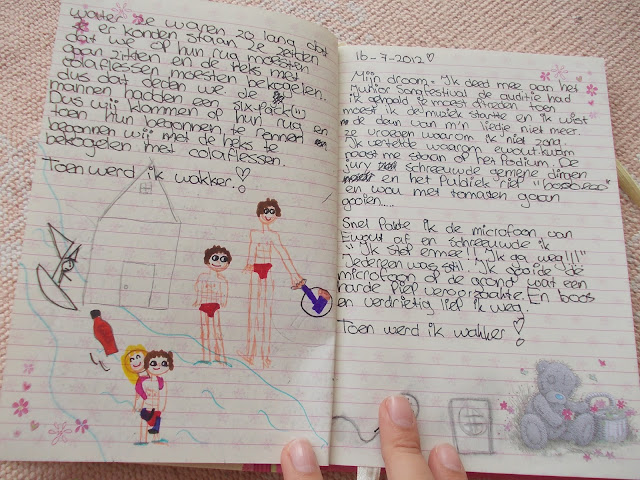 water Ze waren zo lang dat
ze er konden staan. Ze zeiden
dat we op hun rug moesten
gaan zitten en de heks met
colaflessen moesten bekogelen.
dus dat deden we de
mannen hadden een six-pack(;)
Dus wij klommen op hun rug en
toen hun begonnen te rennen
begonnen wij met de heks te
bekogelen met colaflessen.
Toen werd ik wakker!
16-7-2012♡
Mijn droom: Ik deed mee aan het
Junior Songfestival de auditie had
ik gehaald je moest optreden toen
moest ik de muziek startte en ik wist
de deun van m'n liedje niet meer.
Ze vroegen waarom ik niet zong,
Ik vertelde waarom. Ewout kwam
naast me staan op het Podium. De
jury schreeuwde gemene dingen
en het Publiek riep "boeoeoeoe"
en wou met tomaten gaan
gooien....
Snel Pakte ik de microfoon van
Ewout af en schreeuwde ik
"Ik stop ermee!! Ik ga weg!!!"
Iedereen was stil. Ik gooide de
microfoon op de grond wat een
harde Piep veroorzaakte. En boos
en verdrietig liep ik weg.
Toen werd ik wakker!